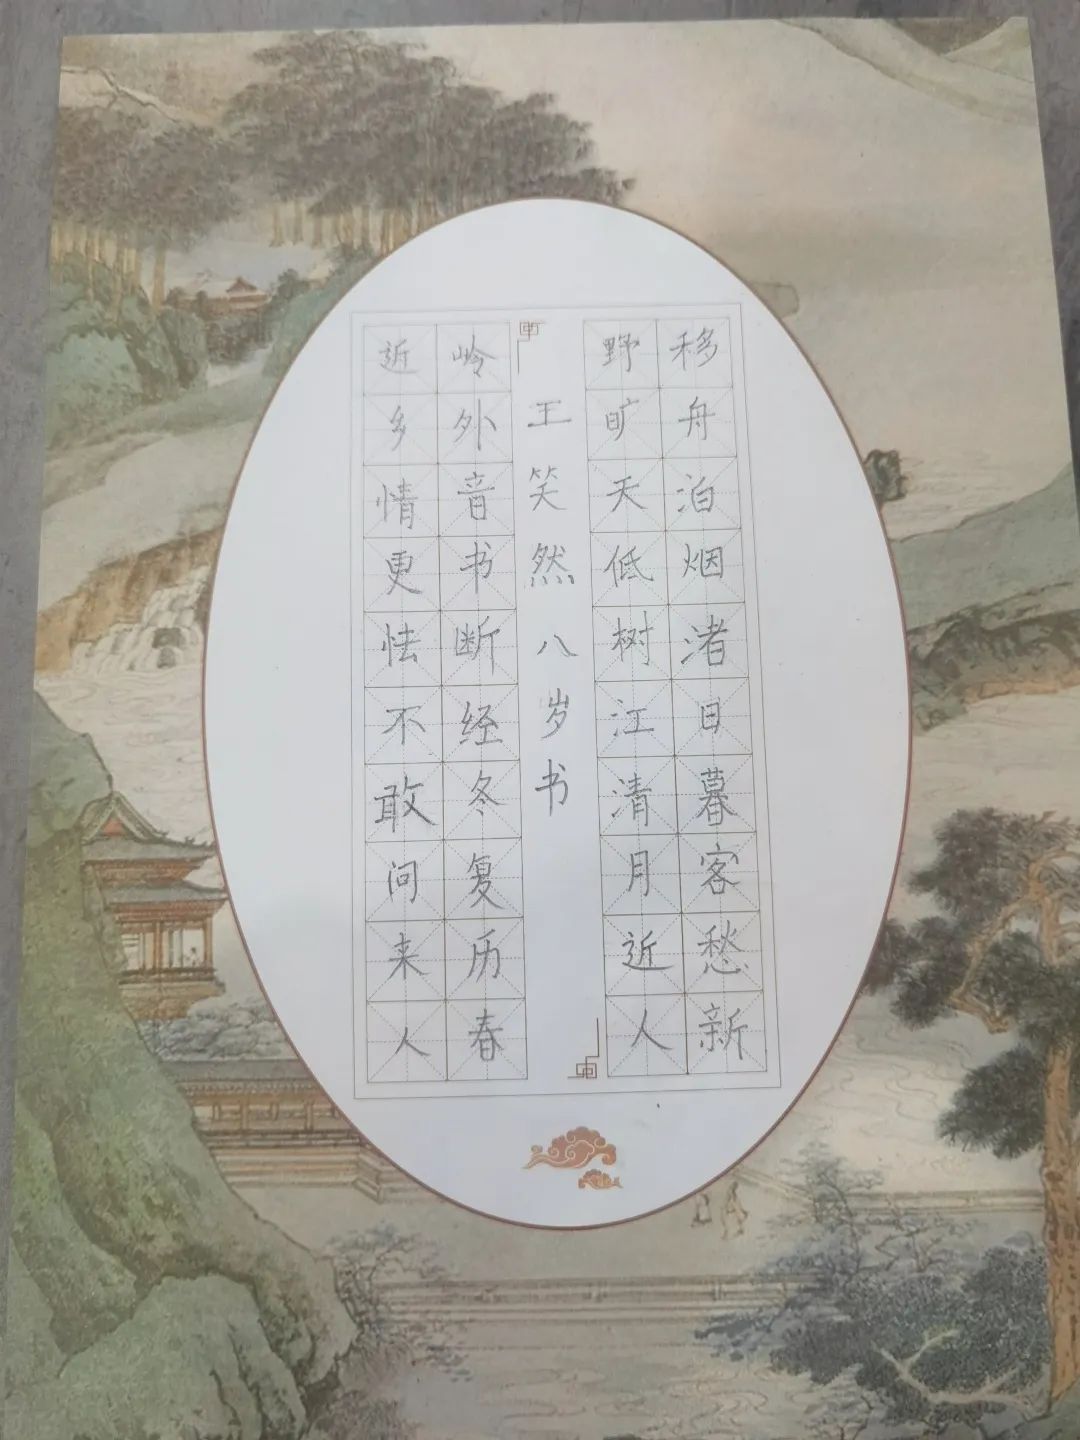 移舟泊烟渚日暮客愁新
野旷天低树江清月近人
王笑然八岁书
岭外音书断经冬复历春
近乡情更怯不敢问来人